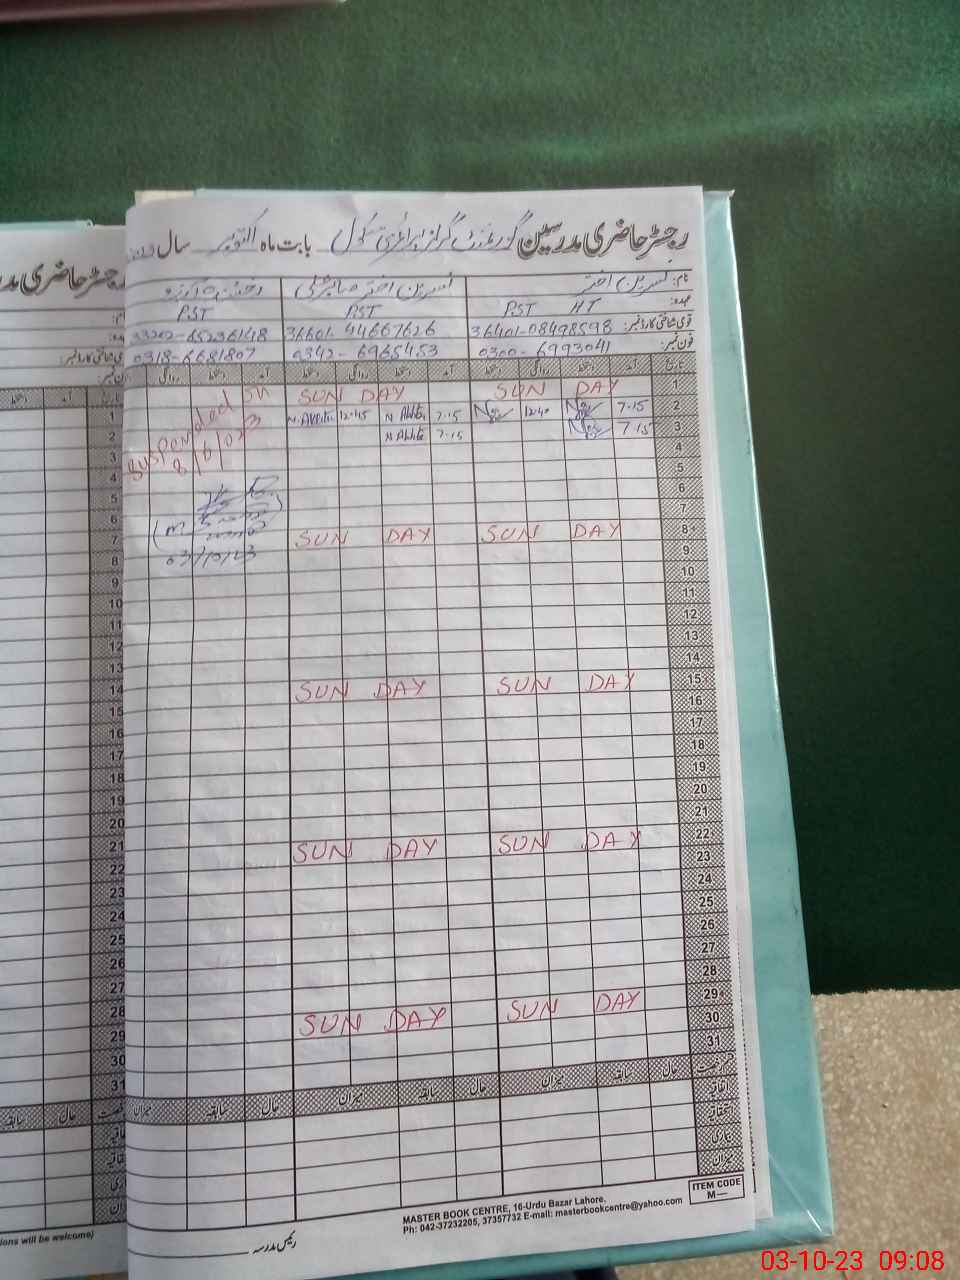 رجسٹر حاضری مدرسین گورنمنٹ گرلز پرائمری سکول بابت ماہ اکتوبر سال 2023
نام: نسرین اختر نسرین اختر
عہدہ: PST HT PST PST
قومی شناختی کارڈ نمبر: 36401-08498598 36601-44667626 33202-65236148
فون نمبر: 0300-6993041 0342-6965453 0318-6681807
تاریخ آمد دستخط روانگی دستخط آمد دستخط روانگی دستخط آمد دستخط روانگی
1 SUN DAY SUN DAY
2 7.15 12:40 7.15 N Akhter 12:45 N. Akhter
3 7.15 7.15 N Akhter
Suspended on
8/6/023
4
5
6
7
8 SUN DAY SUN DAY
03/10/23
9
10
11
12
13
14
15 SUN DAY SUN DAY
16
17
18
19
20
21
22 SUN DAY SUN DAY
23
24
25
26
27
28
29 SUN DAY SUN DAY
30
31
حال سابقہ میزان حال سابقہ میزان حال سابقہ میزان
اتفاقیہ
استحقاقیہ
بیماری
میزان
ITEM CODE
M—
MASTER BOOK CENTRE, 16-Urdu Bazar Lahore.
Ph: 042-37232205, 37357732 E-mail: masterbookcentre@yahoo.com
رئیس مدرسہ
رجسٹر حاضری مدر
1
2
3
4
5
6
7
8
9
10
11
12
13
14
15
16
17
18
19
20
21
22
23
24
25
26
27
28
29
30
31
حال سابقہ
ions will be welcome)
03-10-23 09:08